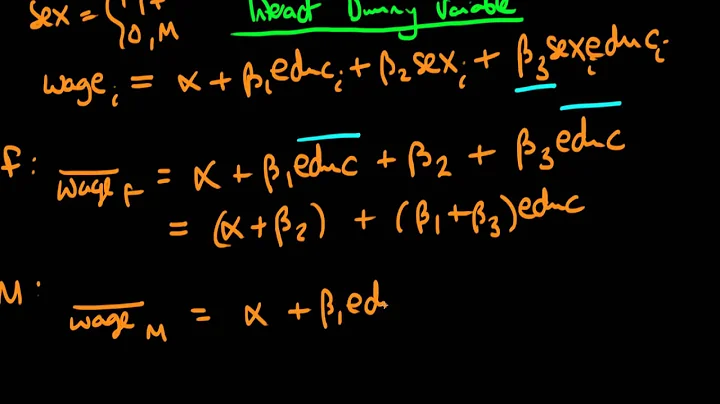 Interact Dummy Variable
Sex = { 1, F
0, M
wageᵢ = α + β₁educᵢ + β₂sexᵢ + β₃sexᵢeducᵢ
F: wage̅_F = α + β₁educ̅ + β₂ + β₃educ̅
= (α+β₂) + (β₁+β₃)educ
M: wage̅_M = α + β₁ed